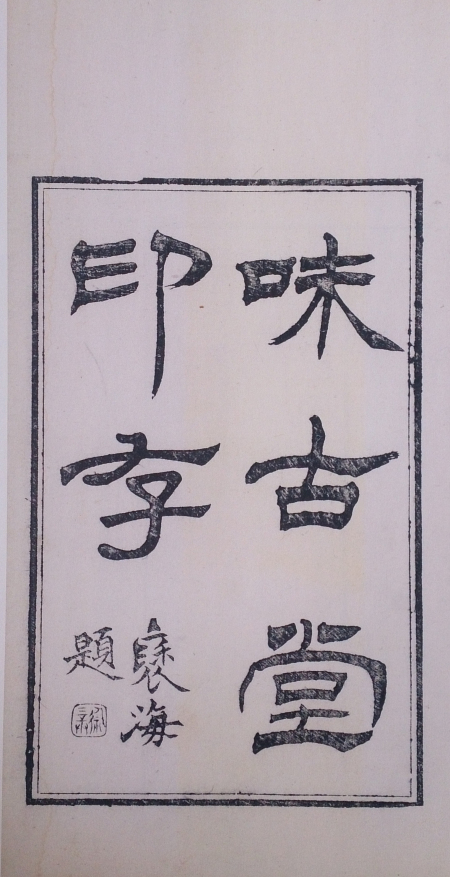 味古堂
印存
褎海
題